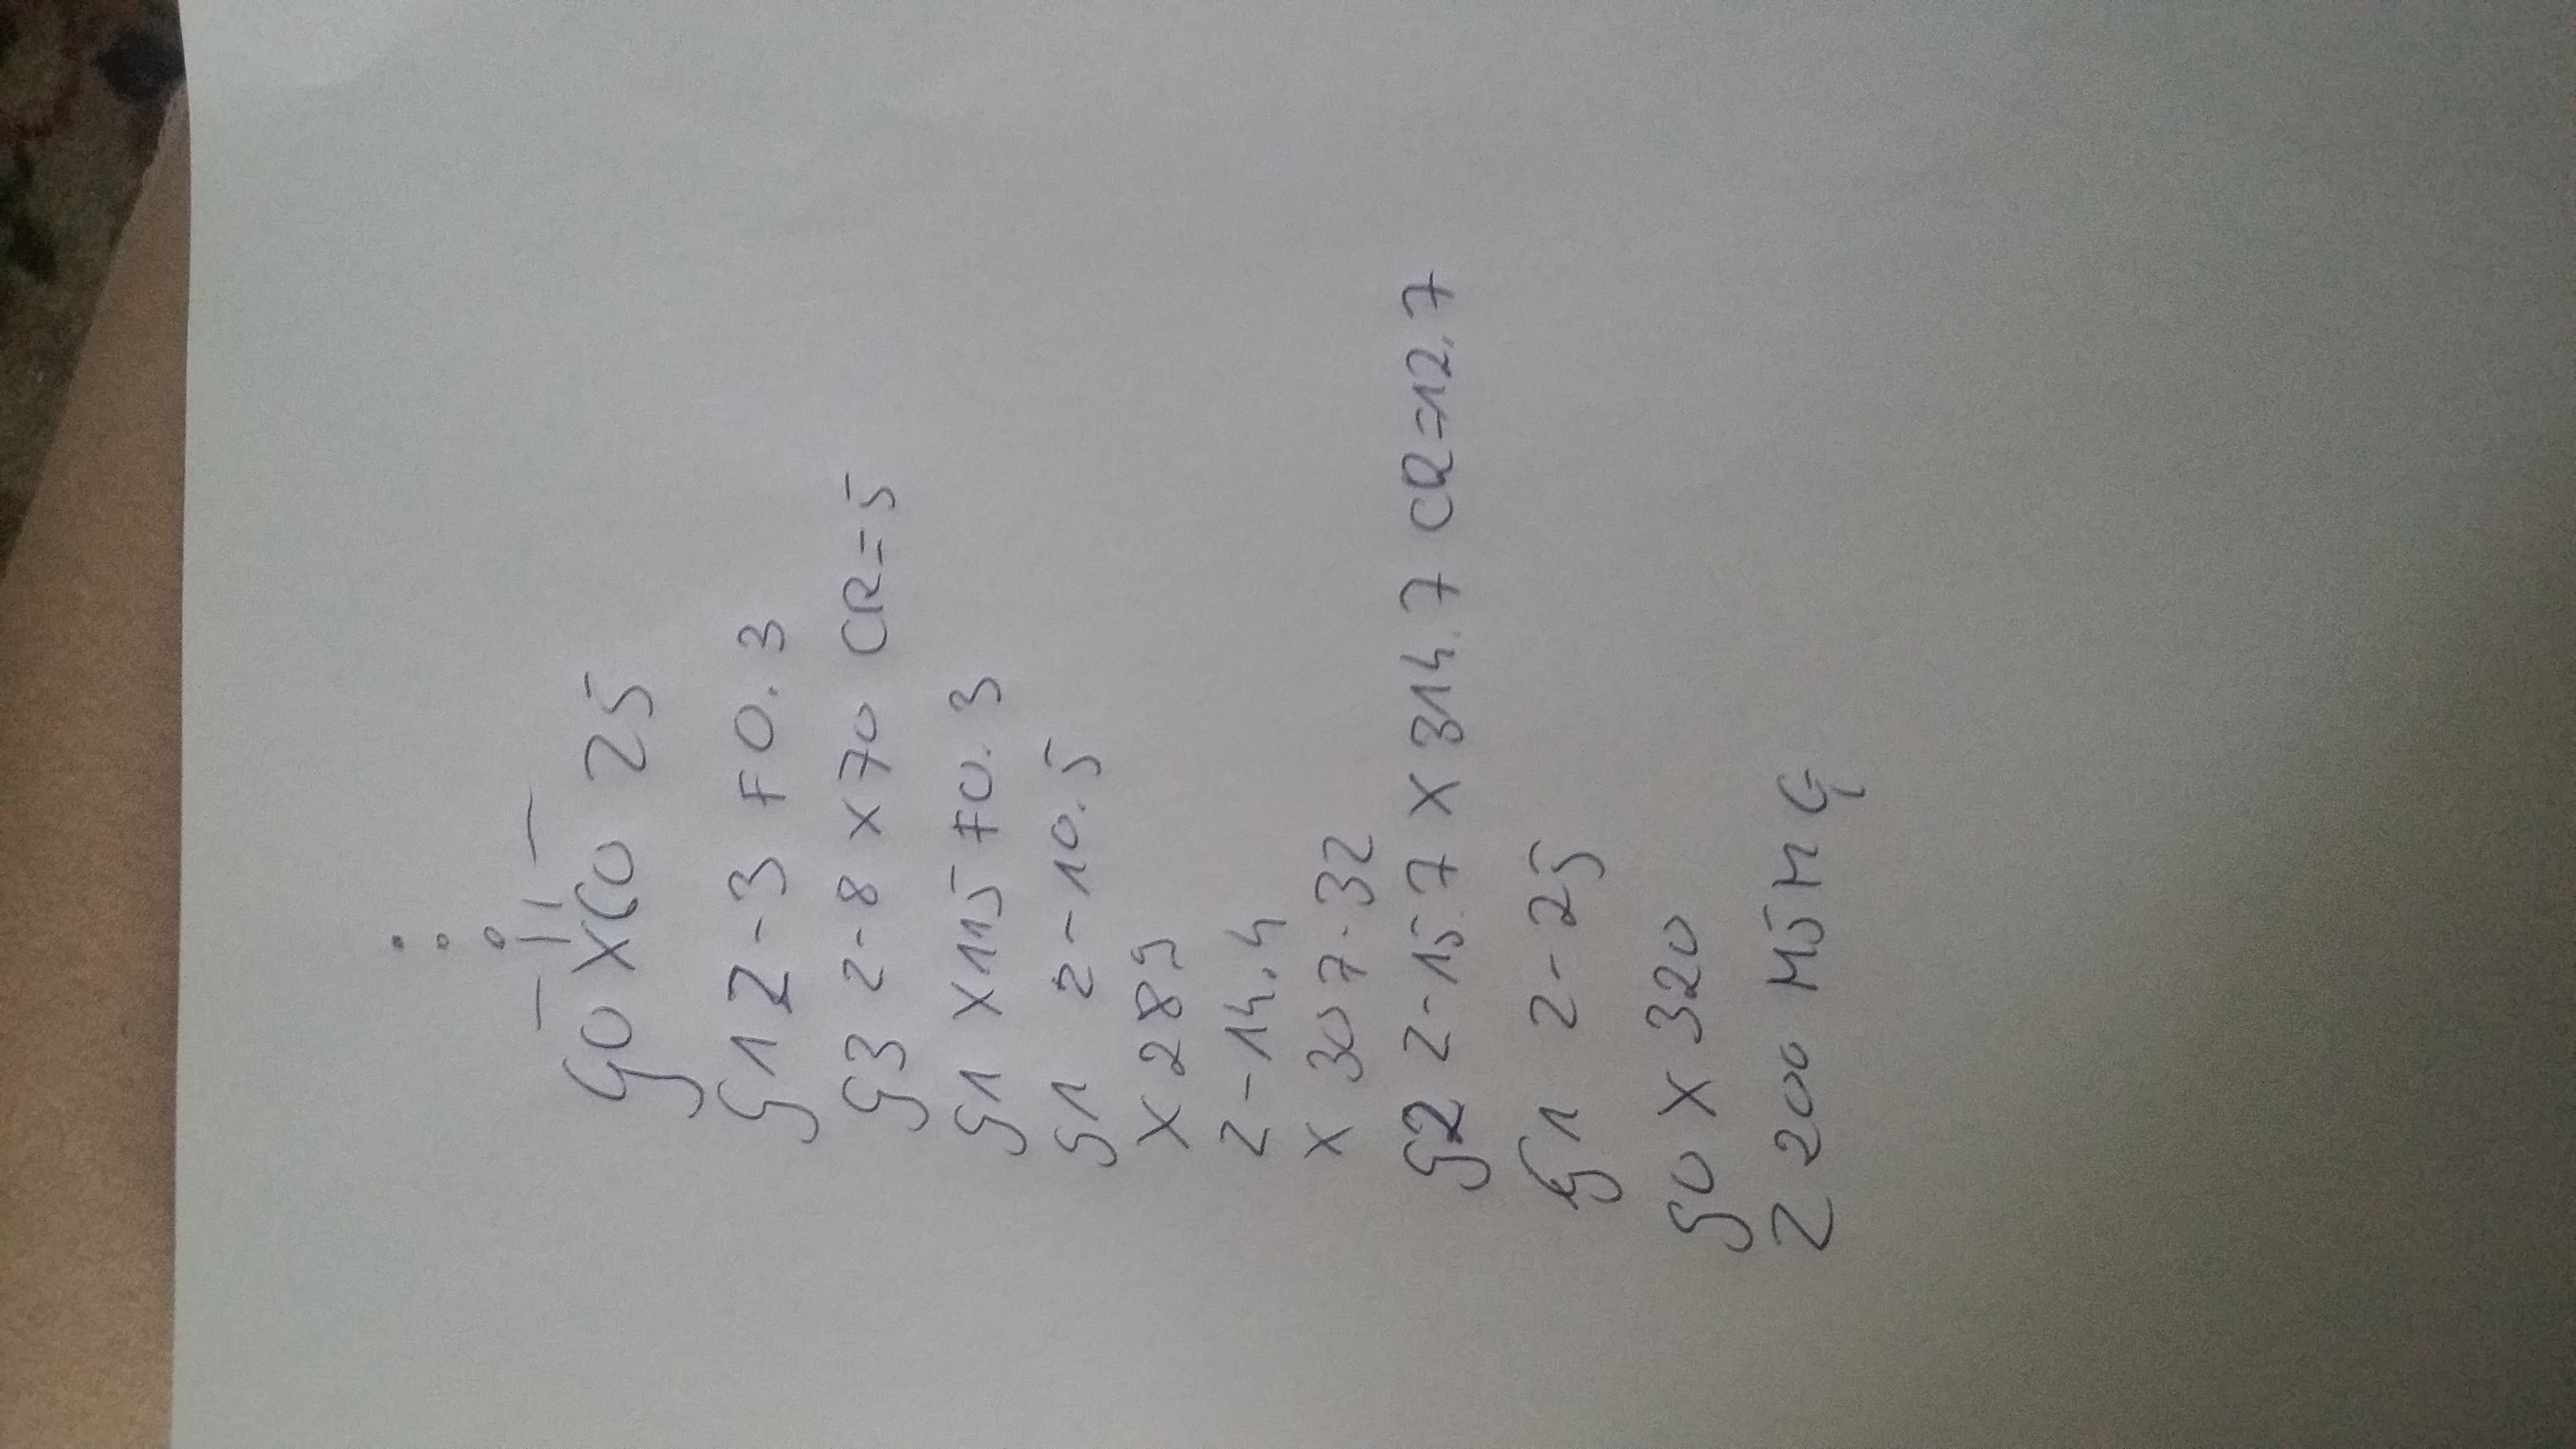 G0 X60 Z5
G1 Z-3 F0.3
G3 Z-8 X70 CR=5
G1 X115 F0.3
G1 Z-10.5
X 289
Z-14.4
X 307.32
G2 Z-15.7 X314.7 CR=12.7
G1 Z-25
G0 X 320
Z 200 M5 M9